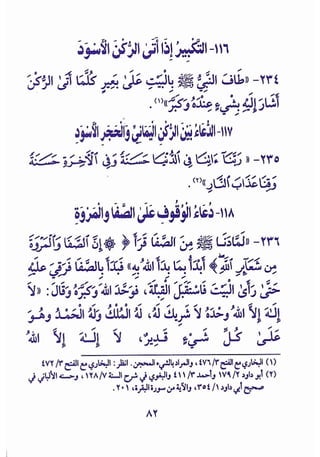 ١١٦- التَّكْبِيرُ إِذَا أَتَى الرُّكْنَ الْأَسْوَدَ
٢٣٤- «طَافَ النَّبِيُّ ﷺ بِالْبَيْتِ عَلَى بَعِيرٍ كُلَّمَا أَتَى الرُّكْنَ
أَشَارَ إِلَيْهِ بِشَيْءٍ عِنْدَهُ وَكَبَّرَ»(١).
١١٧- الدُّعَاءُ بَيْنَ الرُّكْنِ الْيَمَانِيِّ وَالْحَجَرِ الْأَسْوَدِ
٢٣٥- ﴿رَبَّنَا ءَاتِنَا فِي الدُّنْيَا حَسَنَةً وَفِي الْآخِرَةِ حَسَنَةً
وَقِنَا عَذَابَ النَّارِ﴾(٢).
١١٨- دُعَاءُ الْوُقُوفِ عَلَى الصَّفَا وَالْمَرْوَةِ
٢٣٦- «لَمَّا دَنَا ﷺ مِنَ الصَّفَا قَرَأَ ﴿إِنَّ الصَّفَا وَالْمَرْوَةَ
مِن شَعَائِرِ اللَّهِ﴾ أَبْدَأُ بِمَا بَدَأَ اللهُ بِهِ» فَبَدَأَ بِالصَّفَا فَرَقِيَ عَلَيْهِ
حَتَّى رَأَى الْبَيْتَ فَاسْتَقْبَلَ الْقِبْلَةَ، فَوَحَّدَ اللهَ وَكَبَّرَهُ وَقَالَ: «لَا
إِلَهَ إِلَّا اللهُ وَحْدَهُ لَا شَرِيكَ لَهُ، لَهُ الْمُلْكُ وَلَهُ الْحَمْدُ وَهُوَ
عَلَى كُلِّ شَيْءٍ قَدِيرٌ، لَا إِلَهَ إِلَّا اللهُ
(١) البخاري مع الفتح ٤٧٦/٣، والمراد بالشيء المحجن. انظر: البخاري مع الفتح ٤٧٢/٣
(٢) أبو داود ١٧٩/٢ وأحمد ٤١١/٣ والبغوي في شرح السنة ١٢٨/٧، وحسنه الألباني في
صحيح أبي داود ٣٥٤/١، والآية من سورة البقرة، ٢٠١.
٨٢